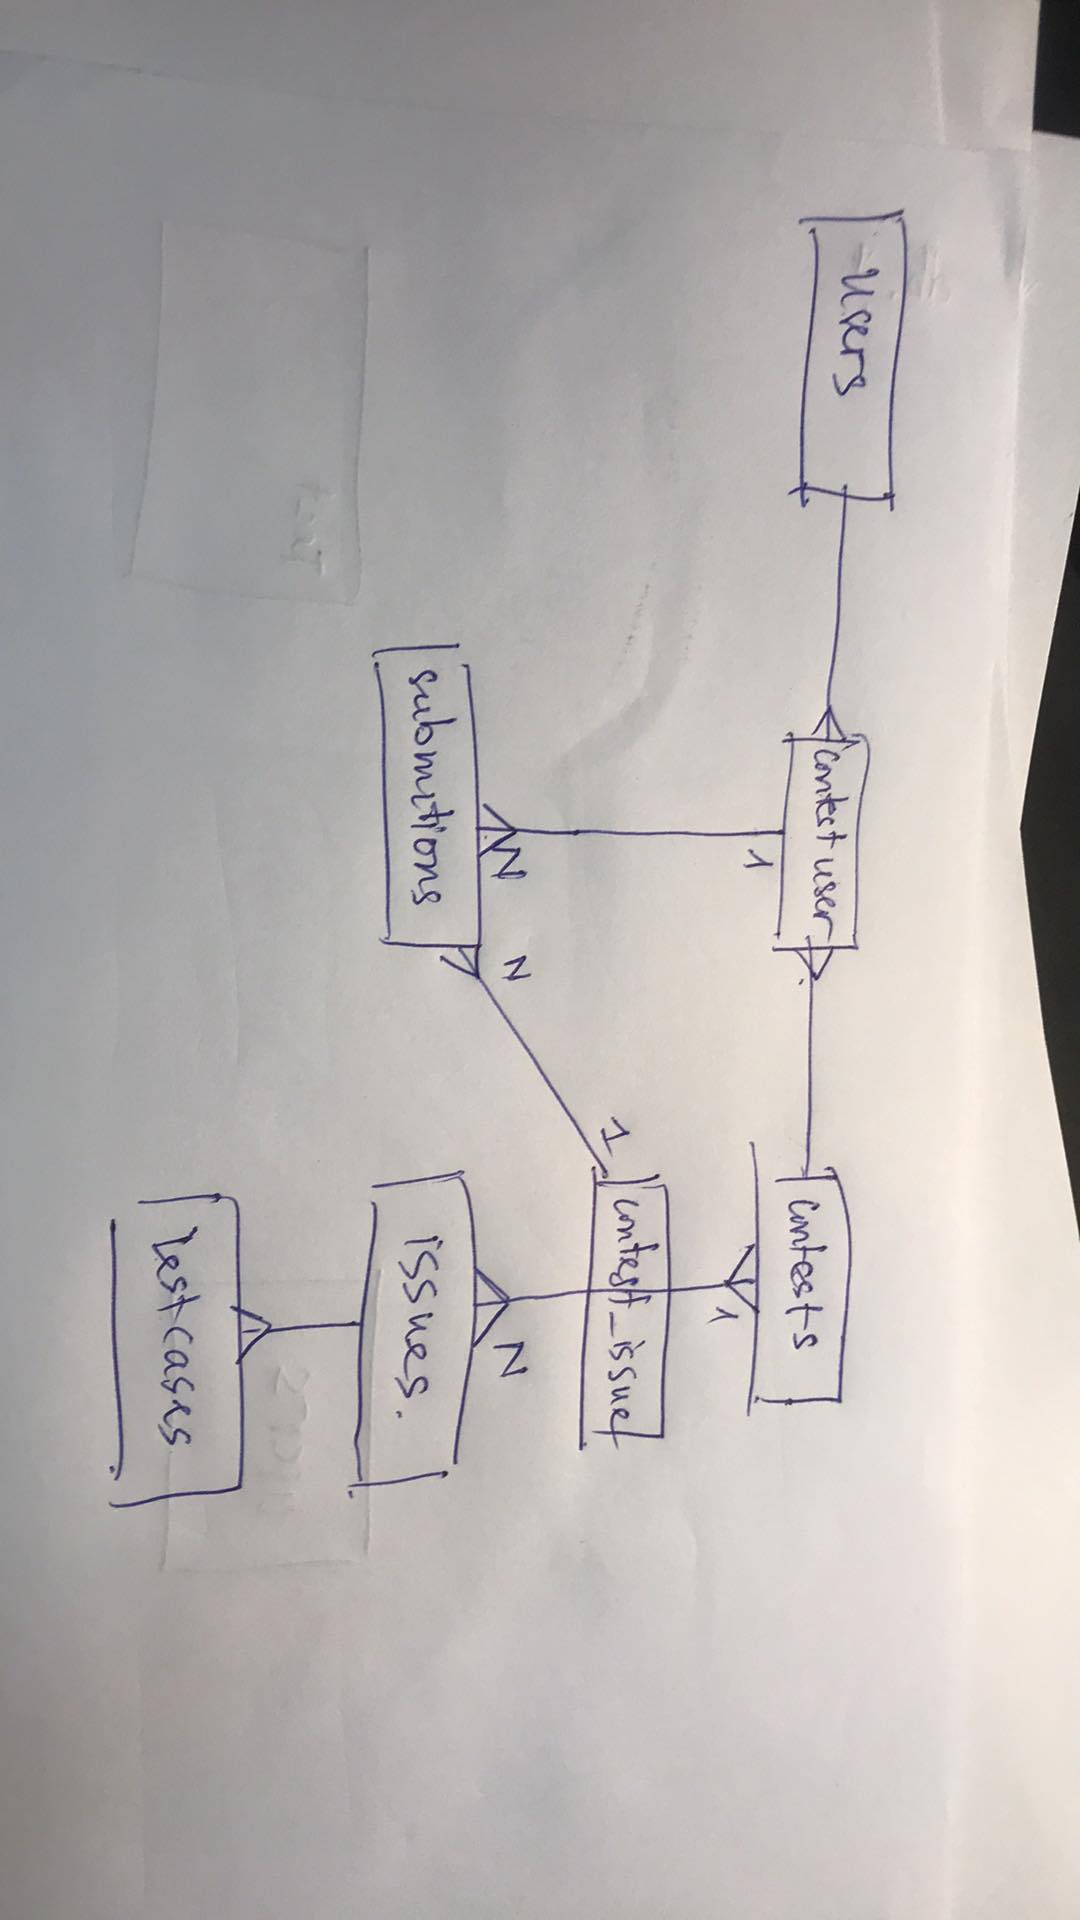 users
contest user
contests
1
1
contest_issue
1
N
N
N
submitions
issues.
testcases